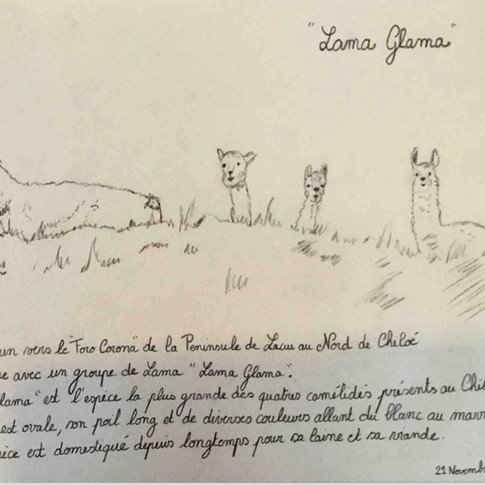 "Lama Glama"
un vers le "Foro Corona" de la Peninsule de Lacui au Nord de Chiloé
e avec un groupe de Lama "Lama Glama".
lama" est l'espèce la plus grande des quatres camélidés présents au Chil
est ovale, son poil long et de diverses couleurs allant du blanc au marr
èce est domestiqué depuis longtemps pour sa laine et sa viande.
21 Novembr